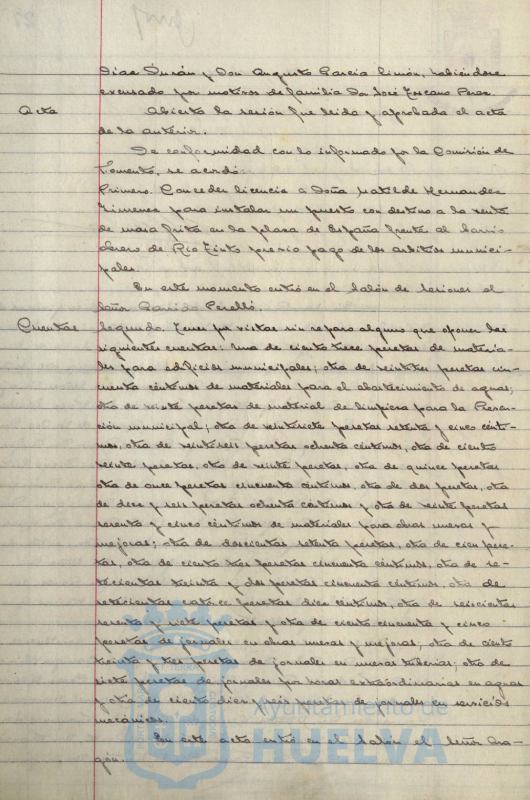 Díaz Durán y Don Augusto García Limón, habiéndose
excusado por motivos de familia Don José Toscano Perez.
Acta
Abierta la sesión fue leida y aprobada el acta
de la anterior.
De conformidad con lo informado por la Comisión de
Fomento, se acordó:
Primero. Conceder licencia a Doña Matilde Hernandez
Jimenez para instalar un puesto con destino a la venta
de masa frita en la plaza de España frente al barrio
obrero de Rio Tinto previo pago de los arbitrios munici-
pales.
En este momento entró en el salón de sesiones el
Señor Garrido Perelló.
Cuentas
Segundo. Tener por vistas sin reparo alguno que oponer las
siguientes cuentas: Una de ciento trece pesetas de materia-
les para edificios municipales; otra de veintitres pesetas cin-
cuenta céntimos de materiales para el abastecimiento de aguas;
otra de veinte pesetas de material de limpieza para la Preven-
ción municipal; otra de veintisiete pesetas setenta y cinco cénti-
mos, otra de veintiseis pesetas ochenta céntimos, otra de ciento
veinte pesetas, otra de veinte pesetas, otra de quince pesetas
otra de once pesetas cincuenta céntimos, otra de dos pesetas, otra
de diez y seis pesetas ochenta céntimos y otra de veinte pesetas
setenta y cinco céntimos de materiales para obras nuevas y
mejoras; otra de doscientas setenta pesetas, otra de cien pese-
tas, otra de ciento tres pesetas cincuenta céntimos, otra de se-
tecientas treinta y dos pesetas cincuenta céntimos, otra de
setecientas catorce pesetas diez céntimos, otra de seiscientas
sesenta y siete pesetas y otra de ciento cincuenta y cinco
pesetas de jornales en obras nuevas y mejoras; otra de ciento
treinta y tres pesetas de jornales en nuevas tuberias; otra de
siete pesetas de jornales por horas extraordinarias en aguas
y otra de ciento diez y seis pesetas de jornales en servicios
mecánicos.
En este acto entró en el salón el Señor Ara-
gón.
Ayuntamiento de
HUELVA